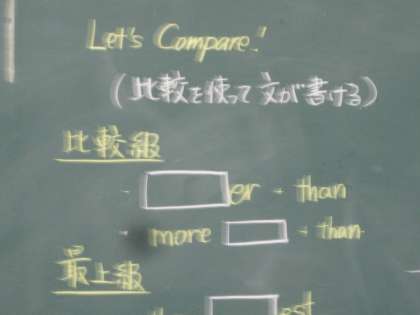 Let's Compare!!
(比較を使って文が書ける)
比較級
- er - than
- more - than
最上級
est